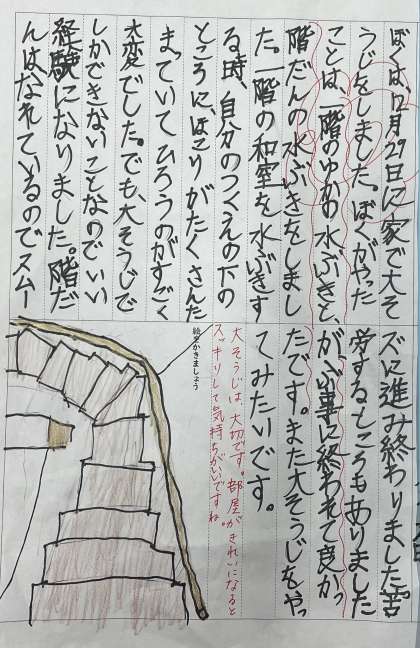 ぼくは、12月29日に家で大そ
うじをしました。ぼくがやった
ことは、一階のゆかの水ぶきと、
階だんの水ぶきをしまし
た。一階の和室を水ぶきす
る時、自分のつくえの下の
ところに、ほこりがたくさんた
まっていてひろうのがすごく
大変でした。でも、大そうじで
しかできないことなのでいい
経験になりました。階だ
んはなれているのでスムー
ズに進み終わりました。苦
労するところもありました
が、ぶ事に終わせて良かっ
たです。また大そうじをやっ
てみたいです。
大そうじは、大切です。部屋がきれいになると
スッキリして気持ちがいいですね。
絵をかきましょう